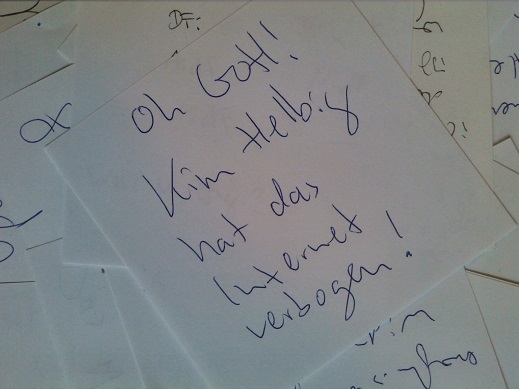 DT:
Oh Gott!
Kim Helbig
hat das
Internet
verbogen!